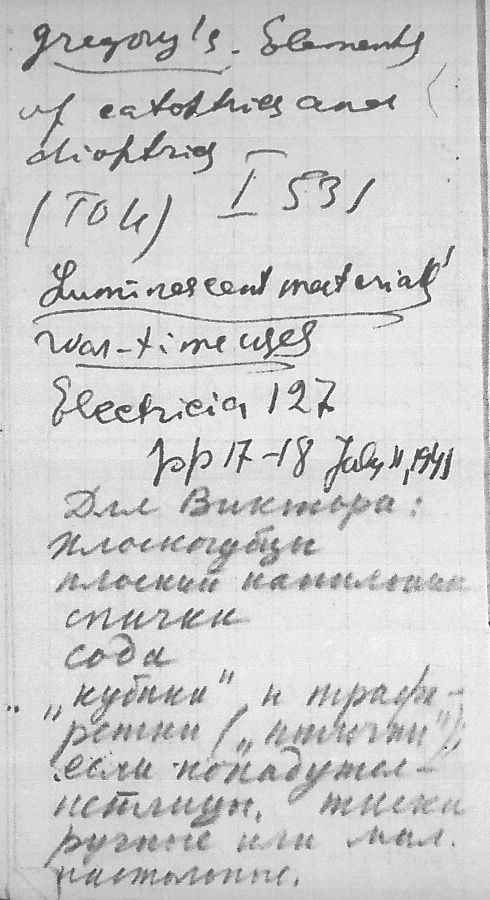 gregory's. Elements
of catoptrics and
dioptrics
(ТОИ) I 531
Luminescent materials'
war-time uses
Electrician 127
pp 17-18 July 11, 1941
Для Виктора:
плоскогубцы
плоский напильник
спички
сода
„кубики" и трафа-
ретки („птички"),
если попадутся –
петлицы, тиски
ручные или мал.
настольные.